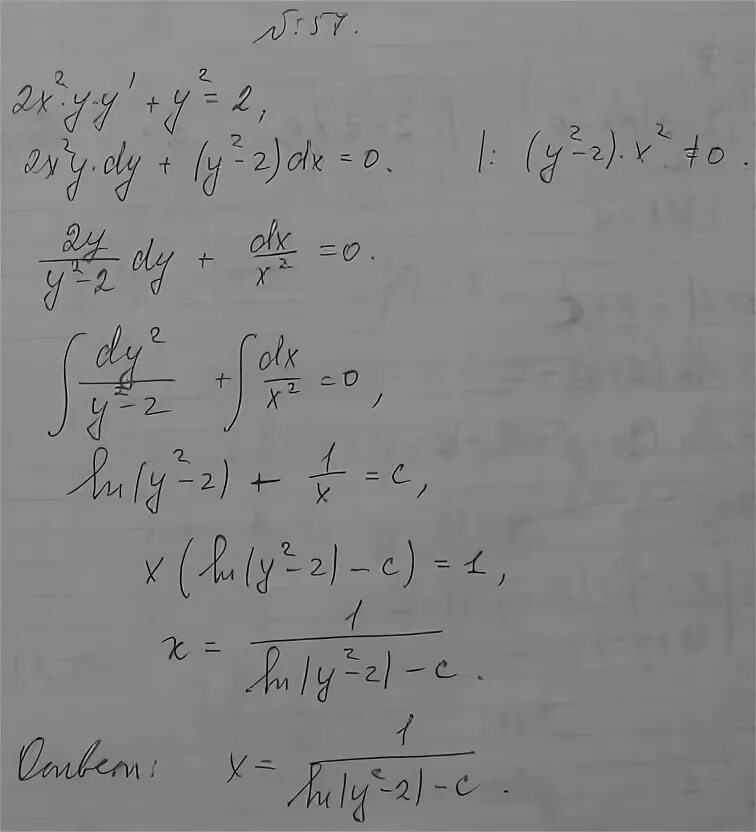 №: 57.
2x²·y·y' + y² = 2,
2x²y·dy + (y²-2)dx = 0. |: (y²-2)·x² ≠ 0.
2y/(y²-2) dy + dx/x² = 0.
∫ dy²/(y²-2) + ∫ dx/x² = 0,
ln|y²-2| + 1/x = c,
x(ln|y²-2| - c) = 1,
x = 1/(ln|y²-2| - c).
Ответ: x = 1/(ln|y²-2| - c).